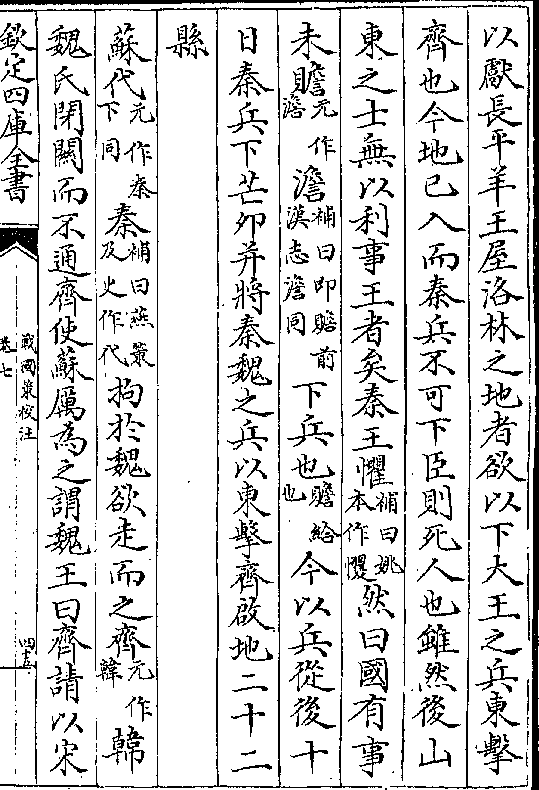 以獻長平羊王屋洛林之地者欲以下大王之兵東擊
齊也今地已入而秦兵不可下臣則死人也雖然後山
東之士無以利事王者矣秦王懼補曰姚本作戄然曰國有事
未贍元作澹澹補曰即贍前漢志澹同下兵也贍給也今以兵從後十
日秦兵下芒卯并將秦魏之兵以東擊齊啟地二十二
縣
蘇代元作秦下同秦補曰燕策及史作代拘於魏欲走而之齊元作韓韓
魏氏閉關而不通齊使蘇厲為之謂魏王曰齊請以宋
欽定四庫全書
戰國策校注
卷七
四五